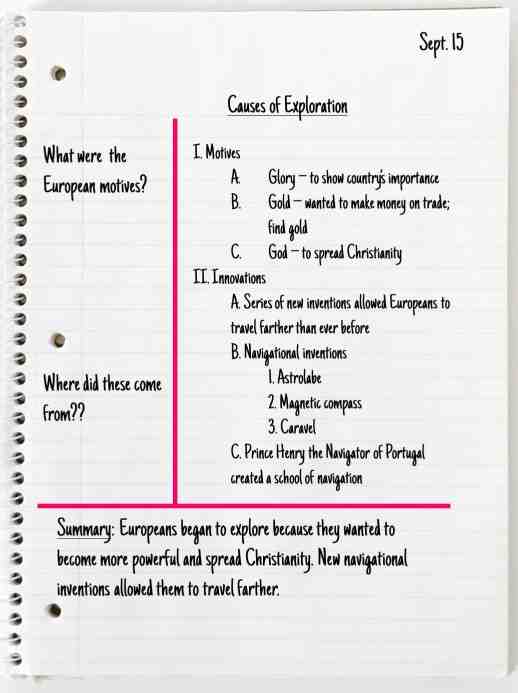 Sept. 15
Causes of Exploration
What were the
European motives?
I. Motives
A. Glory – to show country's importance
B. Gold – wanted to make money on trade;
find gold
C. God – to spread Christianity
II. Innovations
A. Series of new inventions allowed Europeans to
travel farther than ever before
B. Navigational inventions
1. Astrolabe
2. Magnetic compass
3. Caravel
C. Prince Henry the Navigator of Portugal
created a school of navigation
Where did these come
from??
Summary: Europeans began to explore because they wanted to
become more powerful and spread Christianity. New navigational
inventions allowed them to travel farther.